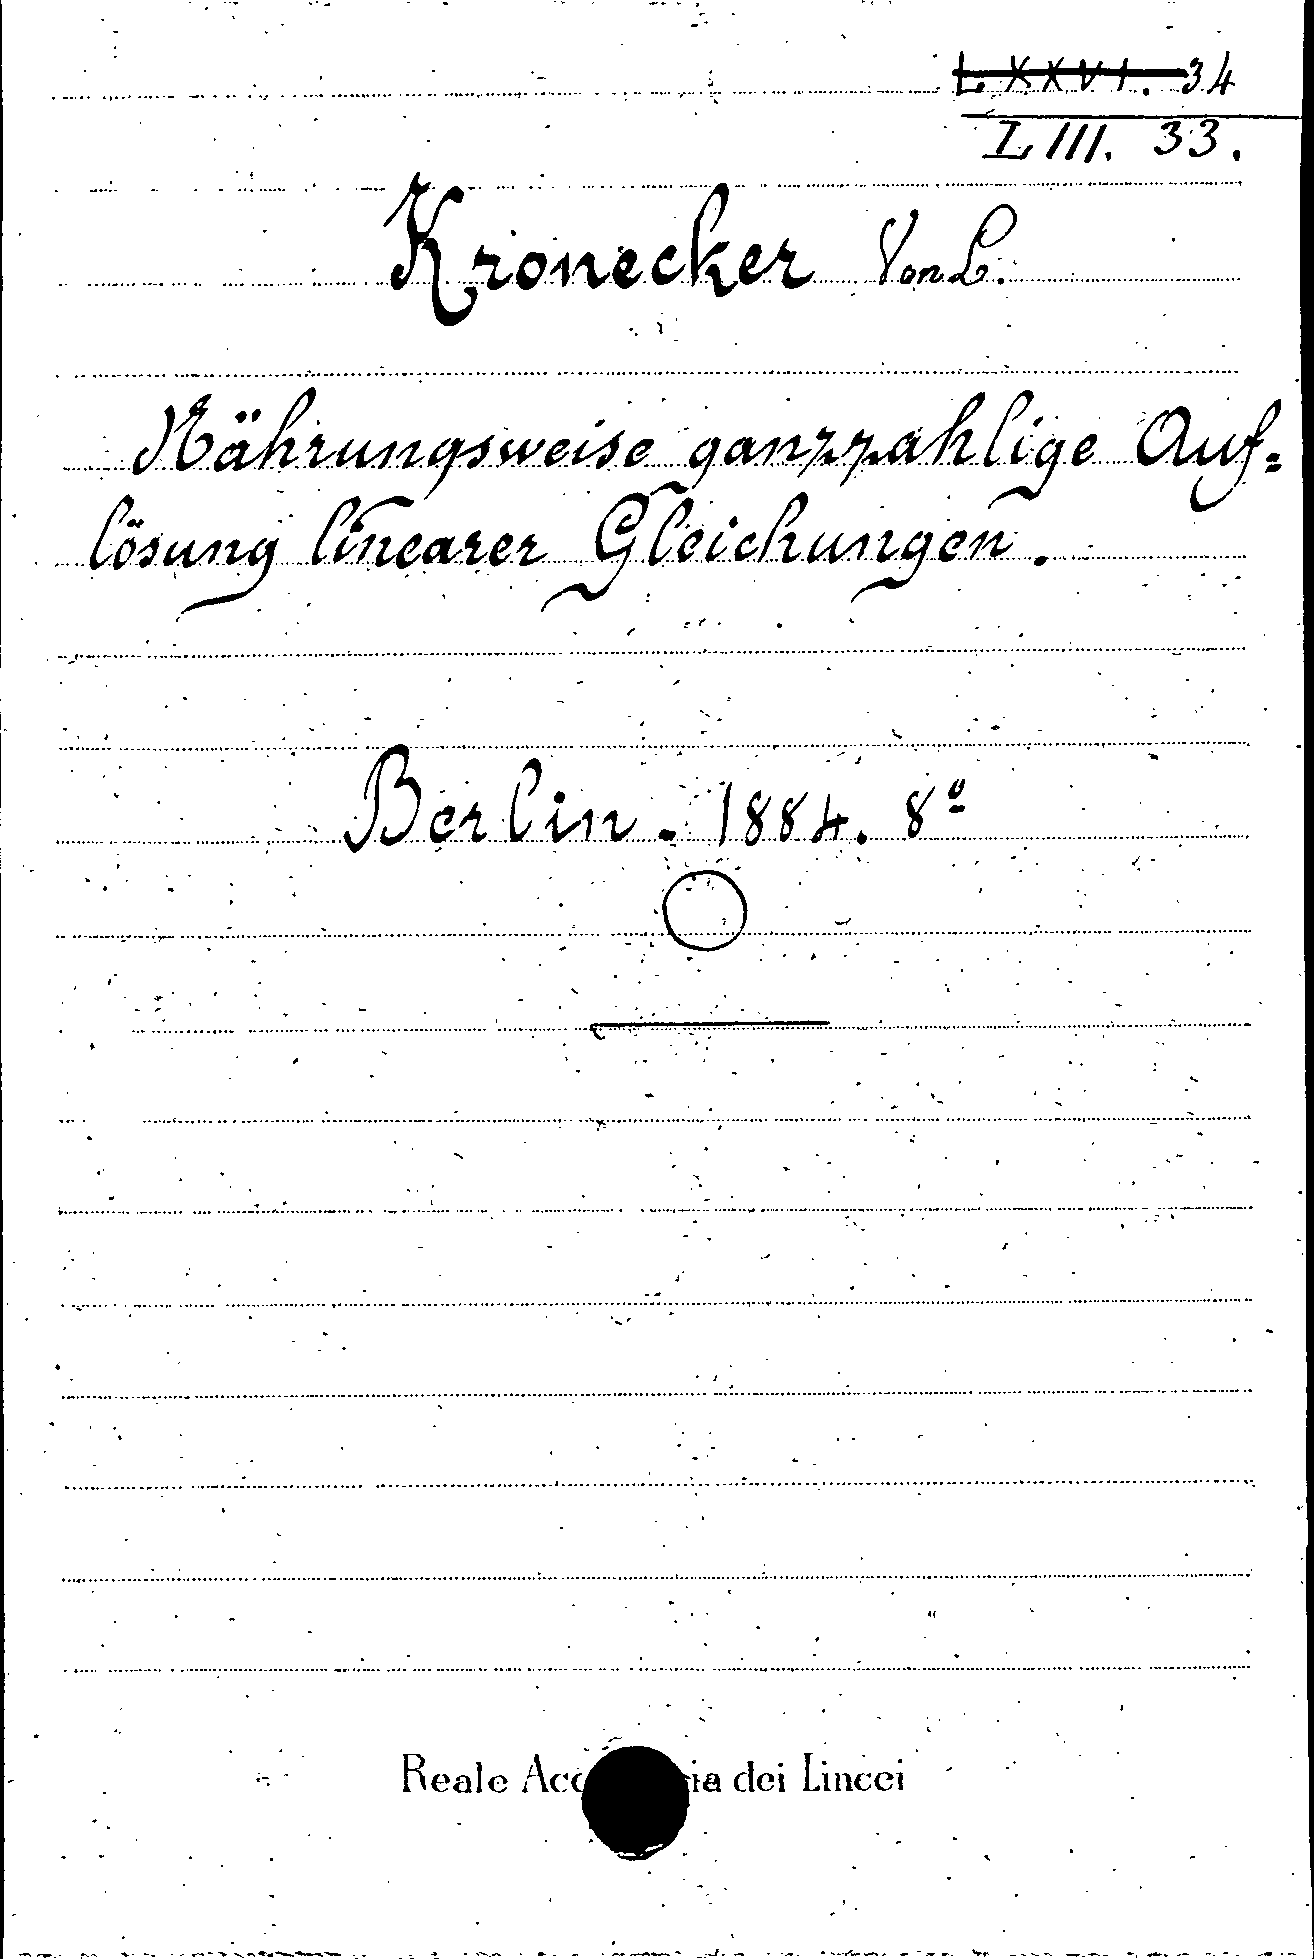 LXXVI. 34
LIII. 33.
Kronecker Von L.
Nährungsweise ganzzahlige Auf=
lösung linearer Gleichungen.
Berlin. 1884. 8º
Reale dei Lincei